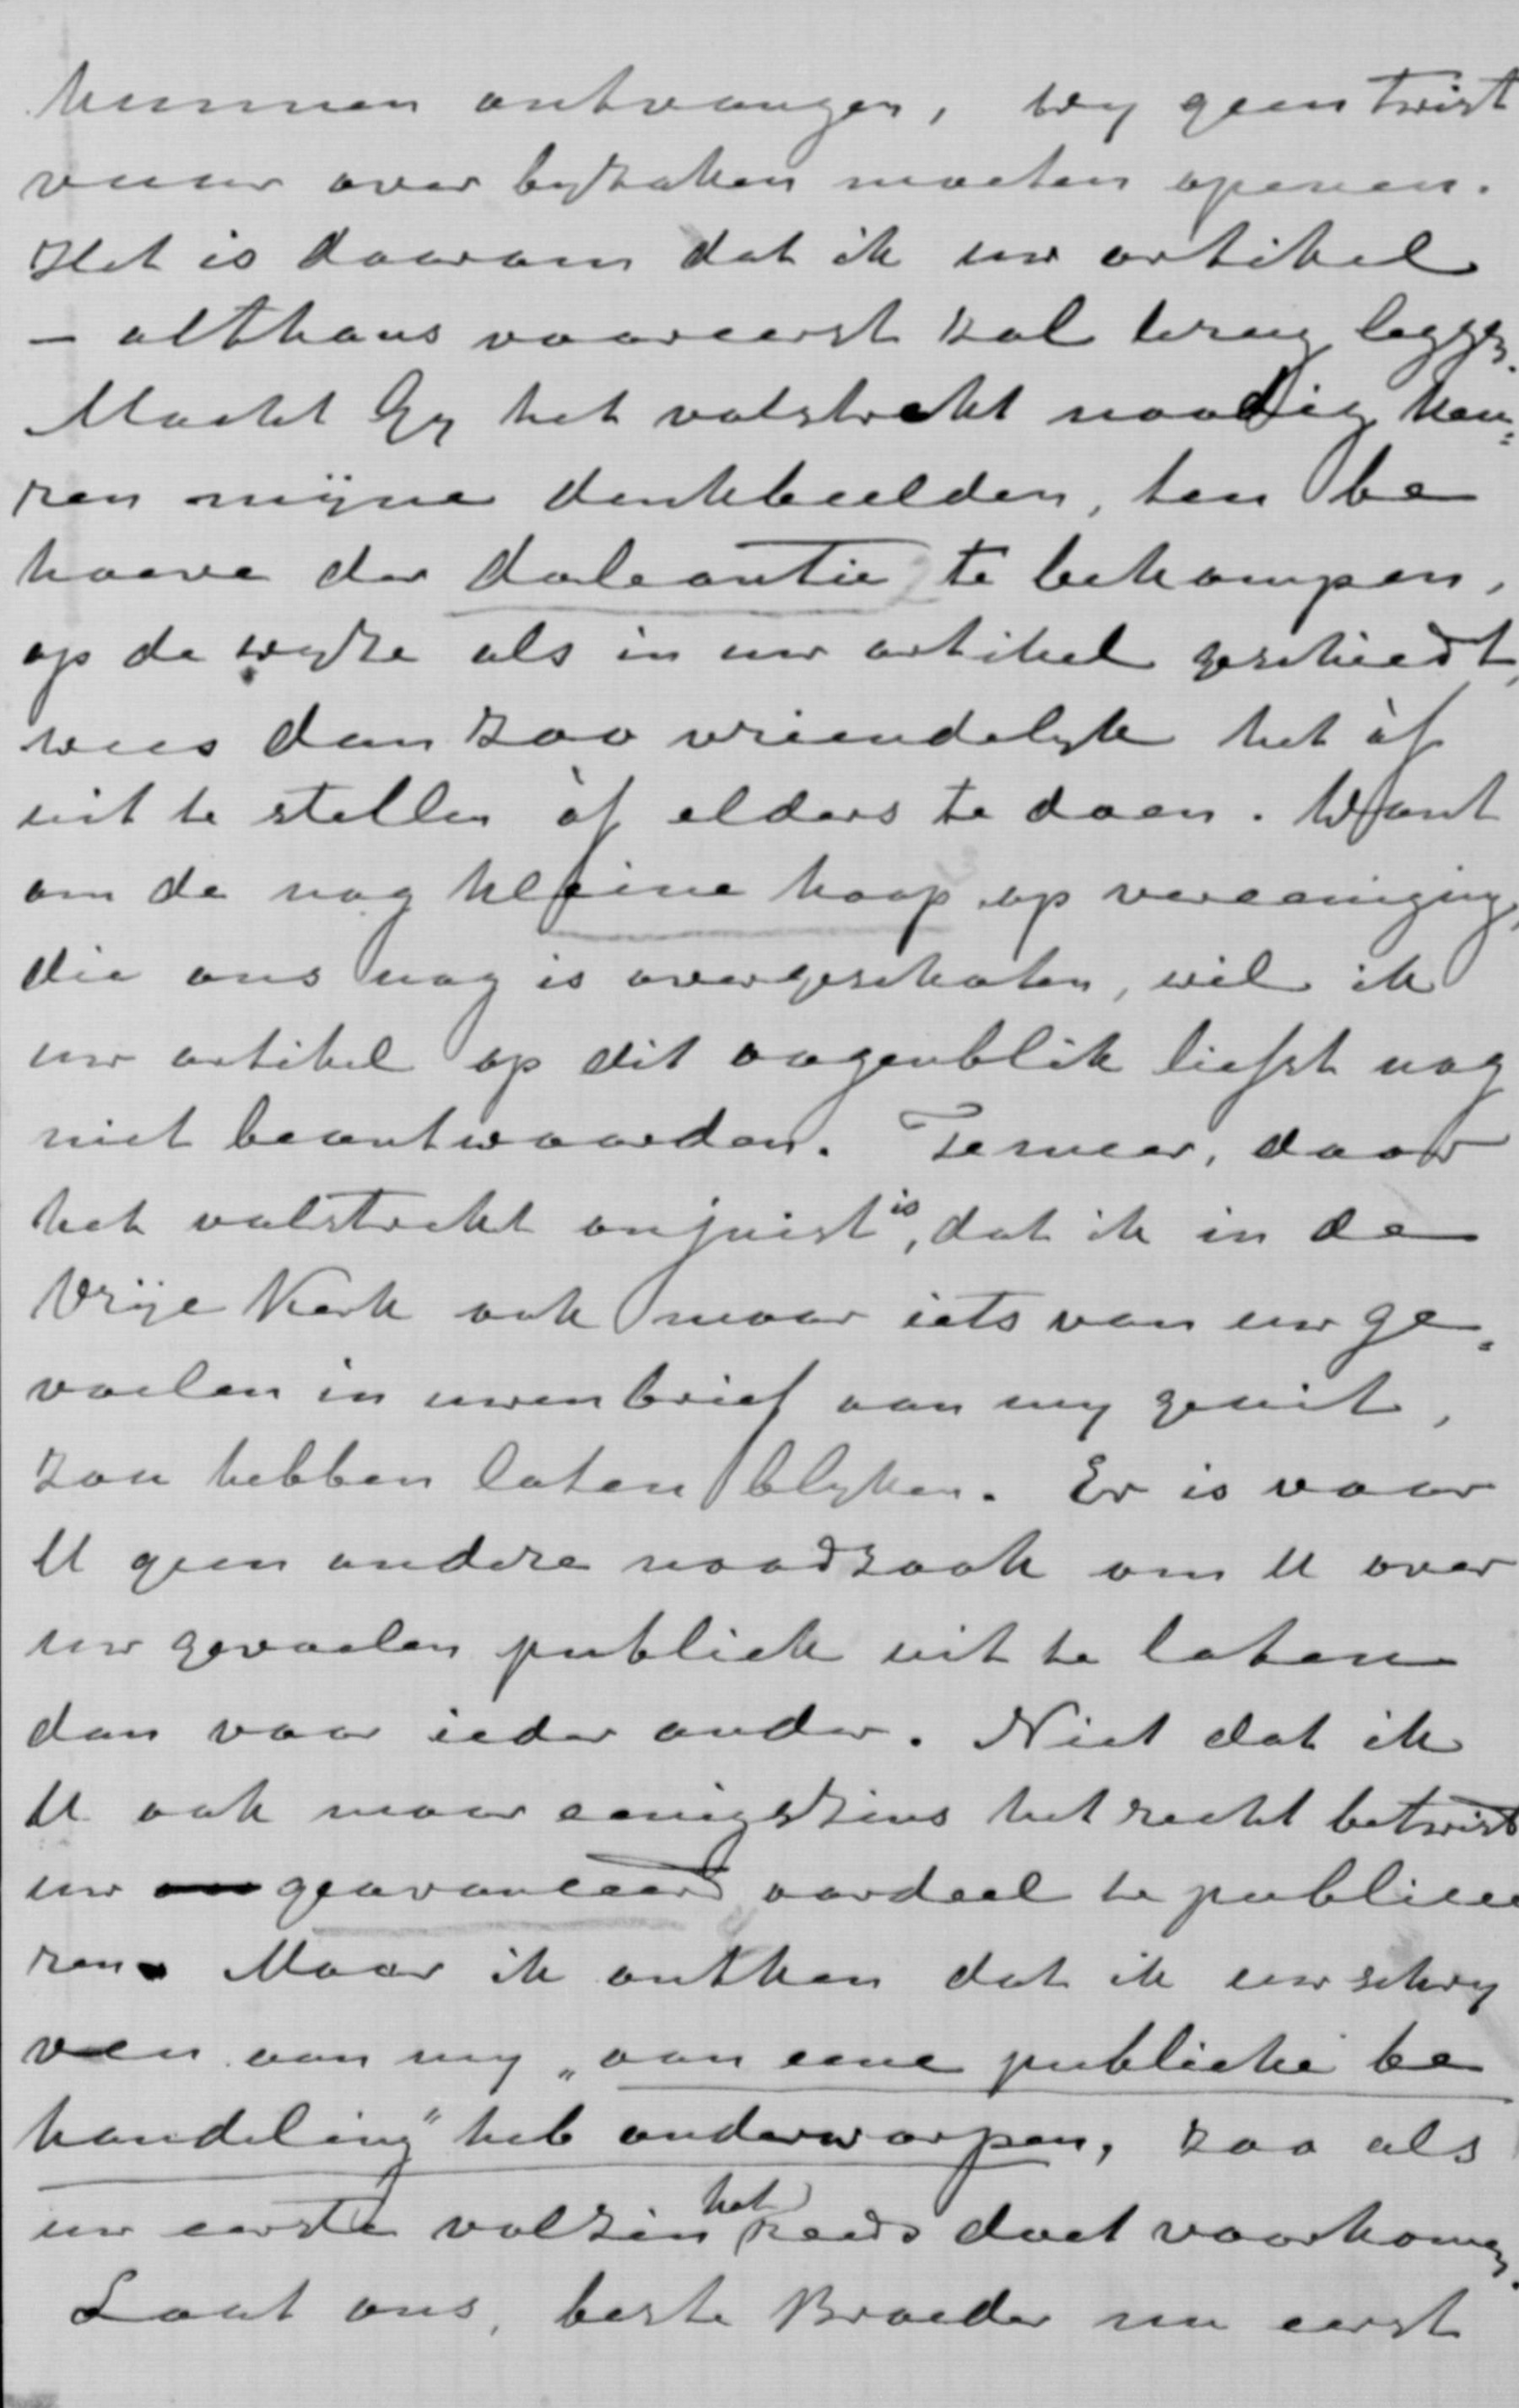 kunnen ontvangen, wy geen twist
vuur over byzaken moeten openen.
Het is daarom dat ik uw artikel
- althans vooreerst zal terug leggen.
Mocht Gy het volstrekt noodig keu=
ren mijne denkbeelden, ten be
hoeve der doleantie te bekampen,
op de wyze als in uw artikel geschiedt,
wees dan zoo vriendelyk het òf
uit te stellen òf elders te doen. Want
om de nog kleine hoop op vereeniging,
die ons nog is overgeschoten, wil ik
uw artikel op dit oogenblik liefst nog
niet beantwoorden. Temeer, daar
het volstrekt onjuist is, dat ik in de
Vrije Kerk ook maar iets van uw ge=
voelen in uwen brief aan my geuit,
zou hebben laten blyken. Er is voor
U geen andere noodzaak om U over
uw gevoelen publiek uit te laten
dan voor ieder ander. Niet dat ik
U ook maar eenigszins het recht betwist
uw geavanceerd oordeel te publicee
ren. Maar ik ontken dat ik uw schry
ven aan my „aan eene publieke be
handeling" heb onderworpen, zoo als
uw eerste volzin het reeds doet voorkomen.
Laat ons, beste Broeder nu eerst